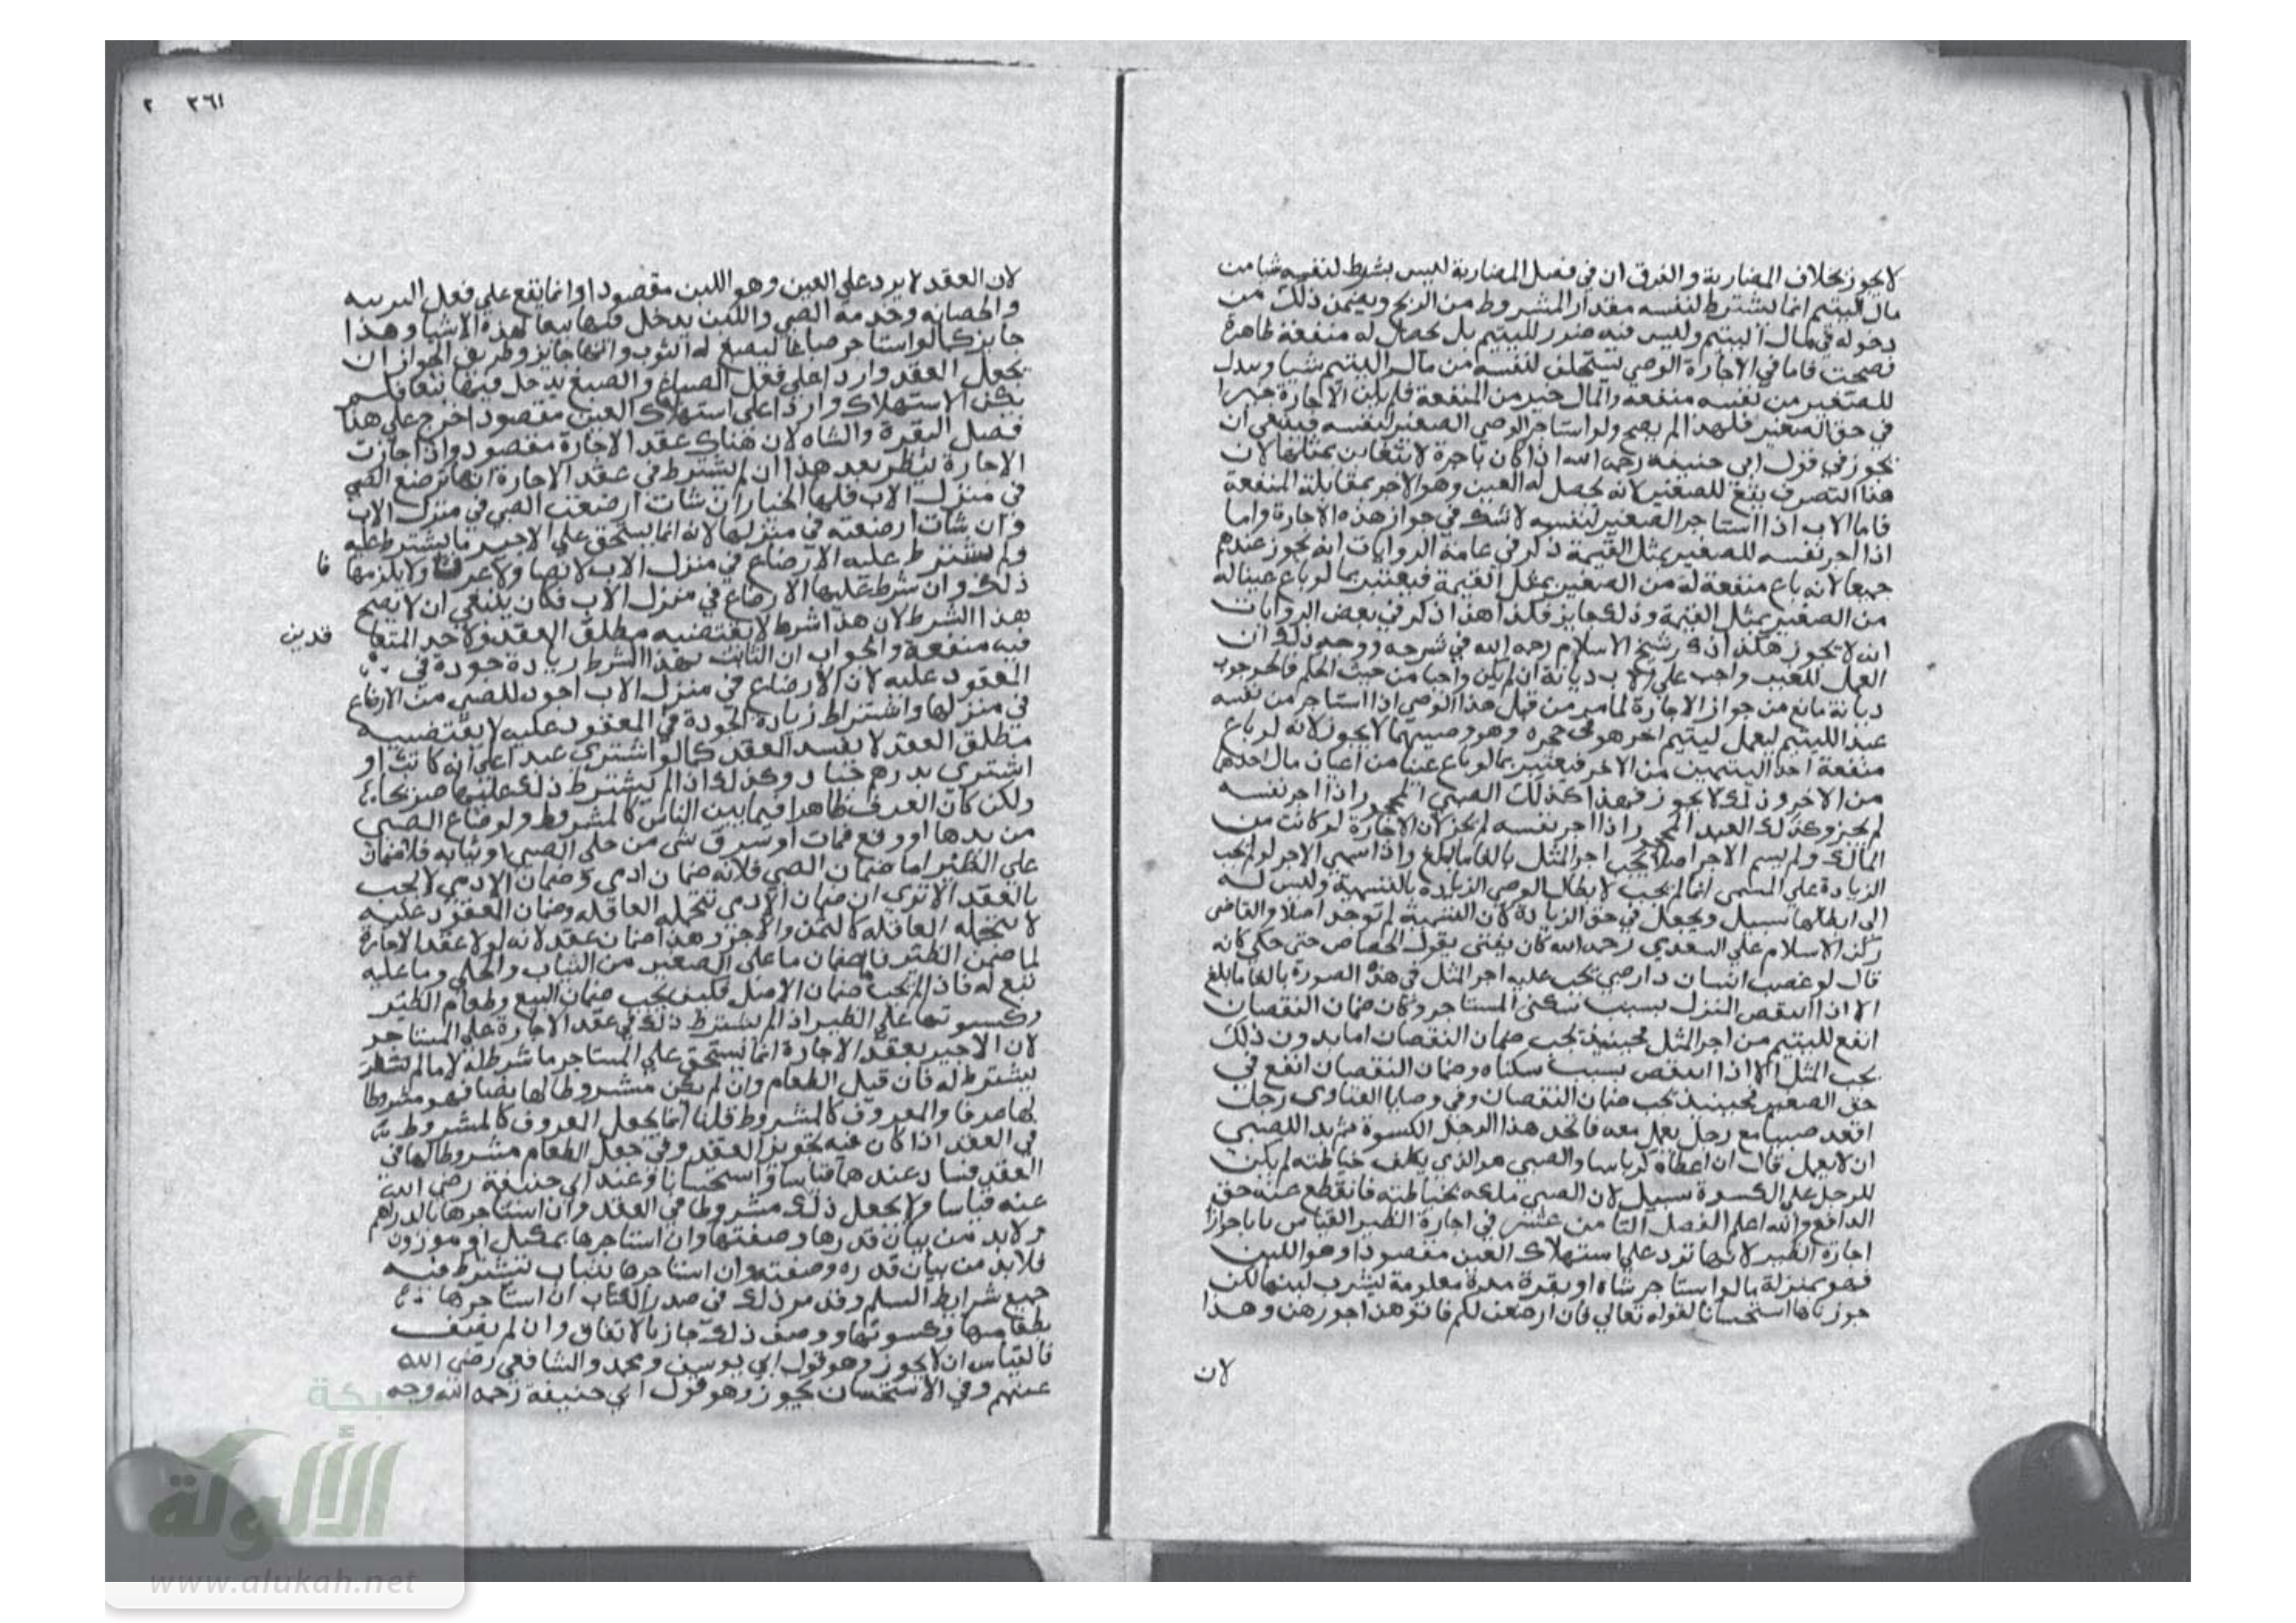 لا يجوز بخلاف المضاربة والفرق ان في فصل المضاربة ليس بشرط لنفسه شيا من
مال اليتيم انما يشترط لنفسه مقدار المشروط من الربح ويضمن ذلك من
دخوله في مال اليتيم وليس فيه ضرر لليتيم بل يحصل له منفعة ظاهرة
فصحت فاما في الاجارة الوصي يستحق لنفسه من مال اليتيم شيا ويبدل
للصغير من نفسه منفعه والمال خير من المنفعة فلم يكن الاجارة خيرا
في حق الصغير فلهذا لم يصح ولو استاجر الوصي الصغير لنفسه فينبغي ان
يجوز في قول ابي حنيفة رحمه الله اذا كان باجرة لا يتغابن بمثلها لان
هذا التصرف يقع للصغير لانه يحصل له العين وهو الاجر بمقابلة المنفعة
فاما الاب اذا استاجر الصغير لنفسه لا شك في جواز هذه الاجارة واما
اذا اجر نفسه للصغير بمثل القيمة ذكر في عامة الروايات انه يجوز عندهم
جميعا لانه باع منفعة له من الصغير بمثل القيمة فيعتبر بما لو باع عينا له
من الصغير بمثل القيمة وذلك جايز فكذا هذا ذكر في بعض الروايات
انه لا يجوز هكذا ذكر شيخ الاسلام رحمه الله في شرحه ووجه ذلك ان
العمل للصبي واجب على الاب ديانة ان لم يكن واجبا من حيث الحكم فالوجوب
ديانة مانع من جواز الاجارة لما مر من قبل هذا الوصي اذا استاجر من نفسه
عبد اليتيم ليعمل ليتيم اخر هو في حجره وهو وصيهما لا يجوز لانه لو باع
منفعة احد اليتيمين من الاخر فيعتبر بما لو باع عينا من اعيان مال احدهما
من الاخر وذلك لا يجوز فهذا كذلك الصبي المحجور اذا اجر نفسه
لم يجز وكذلك العبد المحجور اذا اجر نفسه لم يجز لان الاجارة لو كانت من
المالك ولم يسم الاجر اصلا يجب اجر المثل بالغا ما بلغ واذا سمي الاجر لو لم يجب
الزيادة على المسمى انما لم يجب لابطال الوصي الزيادة بالتسمية وليس له
الى ابطالها سبيل ويجعل في حق الزيادة كان التسمية لم توجد اصلا والقاضي
ركن الاسلام علي السغدي رحمه الله كان يفتى بقول الخصاف حتى حكي كانه
قال لو غصب انسان دار صبي يجب عليه اجر المثل في هذه الصورة بالغا ما بلغ
الا اذا انتقص المنزل بسبب سكنى المستاجر وكان ضمان النقصان
انفع لليتيم من اجر المثل فحينيذ يجب ضمان النقصان اما بدون ذلك
يجب المثل الا اذا انتقص بسبب سكناه وضمان النقصان انفع في
حق الصغير فحينيذ يجب ضمان النقصان وفي وصايا الفتاوى رجل
اقعد صبيا مع رجل يعمل معه فاتخذ هذا الرجل الكسوة ثم بدا للصبي
ان لا يعمل قال ان اعطاه كرباسا والصبي هو الذي يكلف خياطته لم يكن
للرجل على الكسوة سبيل لان الصبي ملكه بخياطته فانقطع عنه حق
الدافع والله اعلم الفصل الثامن عشر في اجارة الظير القياس يابا جواز
اجارة الظير لانها ترد على استهلاك العين مقصودا وهو اللبن
فهو بمنزلة ما لو استاجر شاه او بقرة مدة معلومة ليشرب لبنها لكن
جوزناها استحسانا لقوله تعالي فان ارضعن لكم فاتوهن اجورهن وهذا
لان
٣٦١ ٢
لان العقد لا يرد على العين وهو اللبن مقصودا وانما يقع على فعل التربيه
والحضانه وخدمة الصبي واللبن يدخل فيها تبعا لهذه الاشيا وهذا
جايز كما لو استاجر صباغا ليصبغ له الثوب وانها جايز وطريق الجواز ان
يجعل العقد واردا على فعل الصباغ والصبغ يدخل فيها تبعا فلم
يكن الاستهلاك واردا على استهلاك العين مقصودا خرج على هذا
فصل البقرة والشاه لان هناك عقد الاجارة مقصود واذا جازت
الاجارة ينظر بعد هذا ان لم يشترط في عقد الاجارة انها ترضع الصبي
في منزل الاب فلها الخيار ان شات ارضعت الصبي في منزل الاب
وان شات ارضعته في منزلها لانه انما يستحق على الاجير ما يشترط عليه
ولم يشترط عليه الارضاع في منزل الاب لا نصا ولا عرفا ولا يلزمها
فا
ذلك وان شرط عليها الارضاع في منزل الاب فكان ينبغي ان لا يصح
هذا الشرط لان هذا شرط لا يقتضيه مطلق العقد ولاحد المتعا
قدين
فيه منفعة والجواب ان الثابت بهذا الشرط زيادة جودة في
المعقود عليه لان الارضاع في منزل الاب اجود للصبي من الارضاع
في منزلها واشتراط زيادة الجودة في المعقود عليه لا يقتضيه
مطلق العقد لا يفسد العقد كما لو اشترى عبدا على انه كاتب او
اشترى بدرهم جياد وكذلك اذا لم يشترط ذلك عليها صريحا
ولكن كان العرف ظاهرا فيما بين الناس كالمشروط ولو ضاع الصبي
من يدها او وقع فمات او سرق شي من حلي الصبي او ثيابه فلا ضمان
على الظئر اما ضمان الصبي فلانه ضمان ادمى وضمان الادمي لا يجب
بالعقد الا ترى ان ضمان الادمي تتحمله العاقله وضمان العقود عليه
لا تتحمله العاقلة كالثمن والاجر وهذا ضمان عقد لانه لولا عقد الاجارة
لما ضمن الظئر فالضمان ما على الصغير من الثياب والحلي وما عليه
تبع له فاذا لم يجب ضمان الاصل فكيف يجب ضمان التبع وطعام الظئر
وكسوتها على الظير اذا لم يشترط ذلك في عقد الاجارة على المستاجر
لان الاجير بعقد الاجارة انما يستحق على المستاجر ما شرط له لا ما لم
يشترط له فان قيل الطعام وان لم يكن مشروطا لها نصا فهو مشروطا
لها عرفا والمعروف كالمشروط قلنا انما يجعل المعروف كالمشروط
في العقد اذا كان فيه تجويز العقد وفي جعل الطعام مشروطا لها في
العقد فساد عندهما قياسا واستحسانا وعند ابي حنيفة رضي الله
عنه قياسا ولا يجعل ذلك مشروطا في العقد وان استاجرها بالدراهم
ولابد من بيان قدرها وصفتها وان استاجرها بمكيل او موزون
فلابد من بيان قدره وصفته وان استاجرها بثياب تشترط فيه
جميع شرايط السلم وقد مر ذلك في صدر الكتاب ان استاجرها
بطعامها وكسوتها ووصف ذلك جاز بالاتفاق وان لم يصف
فالقياس ان لا يجوز وهو قول ابي يوسف ومحمد والشافعي رضي الله
عنهم وفي الاستحسان يجوز وهو قول ابي حنيفة رحمه الله وجه
شبكة
الألوكة
www.alukah.net